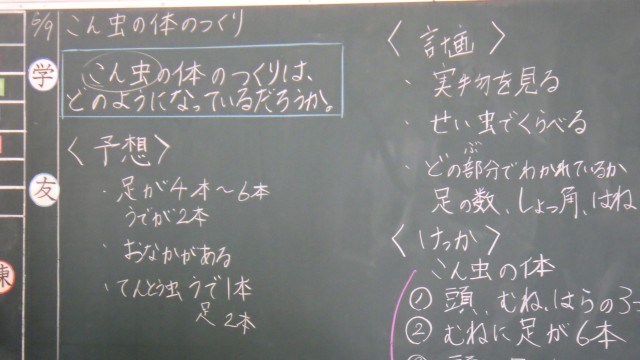 6/9 こん虫の体のつくり
学
こん虫の体のつくりは、
どのようになっているだろうか。
友
〈予想〉
・足が4本〜6本
うでが2本
・おなかがある
・てんとう虫 うで1本
足 2本
〈計画〉
・実物を見る
・せい虫でくらべる
・どの部分でわかれているか
ぶ
足の数、しょっ角、はね
〈けっか〉
こん虫の体
① 頭、むね、はらの3つ
② むねに足が6本